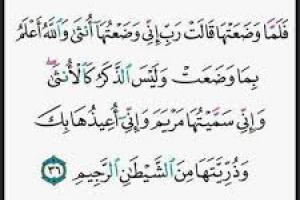 فَلَمَّا وَضَعَتْهَا قَالَتْ رَبِّ إِنِّي وَضَعْتُهَآ أُنثَىٰ وَٱللَّهُ أَعْلَمُ
بِمَا وَضَعَتْ وَلَيْسَ ٱلذَّكَرُ كَٱلْأُنثَىٰۖ
وَإِنِّي سَمَّيْتُهَا مَرْيَمَ وَإِنِّيٓ أُعِيذُهَا بِكَ
وَذُرِّيَّتَهَا مِنَ ٱلشَّيْطَٰنِ ٱلرَّجِيمِ ٣٦